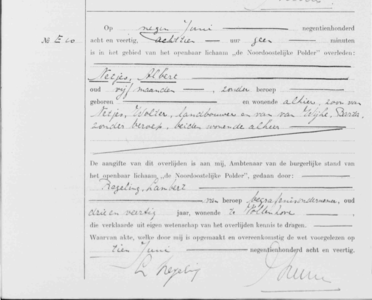 Op negen Juni negentienhonderd
No. E 60 acht en veertig, achttien uur geen minuten
is in het gebied van het openbaar lichaam „de Noordoostelijke Polder" overleden:
Netjes, Albert
oud vijf maanden, zonder beroep
geboren en wonende alhier, zoon van
Netjes, Wolter, landbouwer en van van Wijhe,
zonder beroep, beiden wonende alhier
De aangifte van dit overlijden is aan mij, Ambtenaar van de burgerlijke stand van
het openbaar lichaam „de Noordoostelijke Polder", gedaan door:
Regeling, Lambert
van beroep begrafenisondernemer, oud
drie en veertig jaar, wonende te Vollenhove
die verklaarde uit eigen wetenschap van het overlijden kennis te dragen.
Waarvan akte, welke door mij is opgemaakt en overeenkomstig de wet voorgelezen op
tien Juni negentienhonderd acht en veertig.
L Regeling